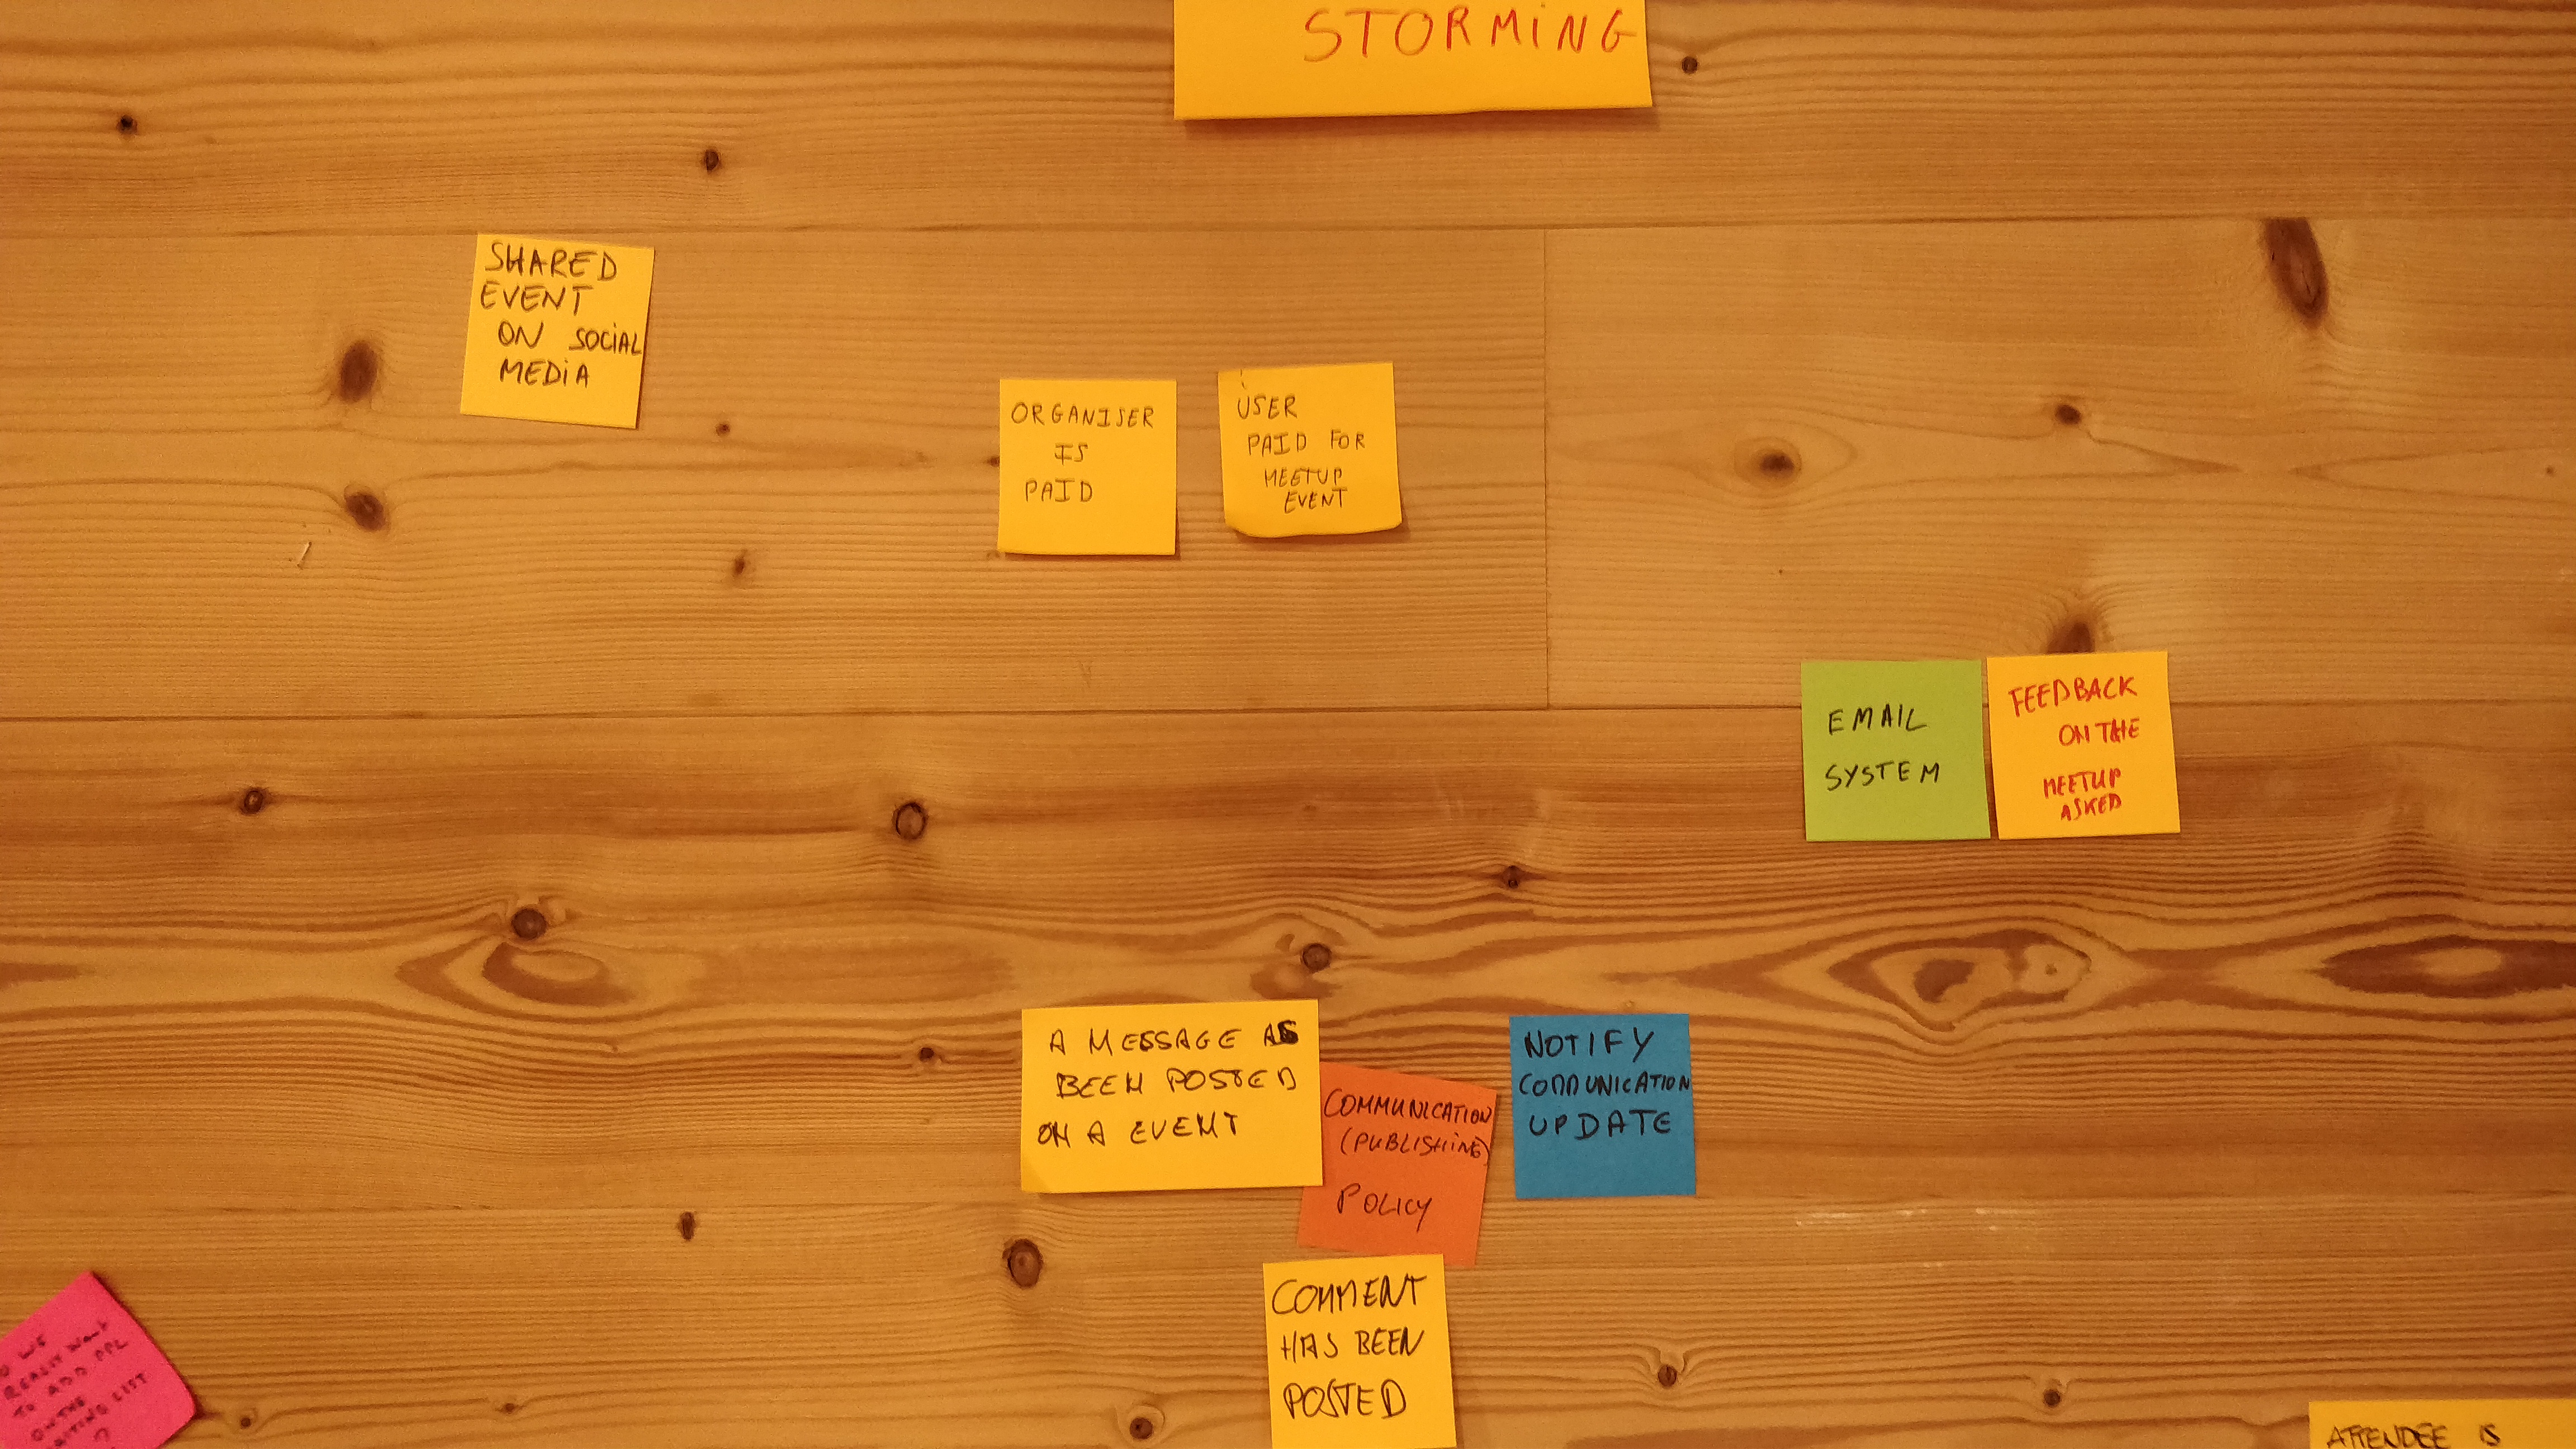 STORMING
SHARED
EVENT
ON SOCIAL
MEDIA
ORGANISER
IS
PAID
USER
PAID FOR
MEETUP
EVENT
EMAIL
SYSTEM
FEEDBACK
ON THE
MEETUP
ASKED
A MESSAGE AS
BEEN POSTED
ON A EVENT
COMMUNICATION
(PUBLISHING)
POLICY
NOTIFY
COMMUNICATION
UPDATE
COMMENT
HAS BEEN
POSTED
WE
REALLY WANT
TO ADD PPL
ON THE
LIST
?
ATTENDEE IS